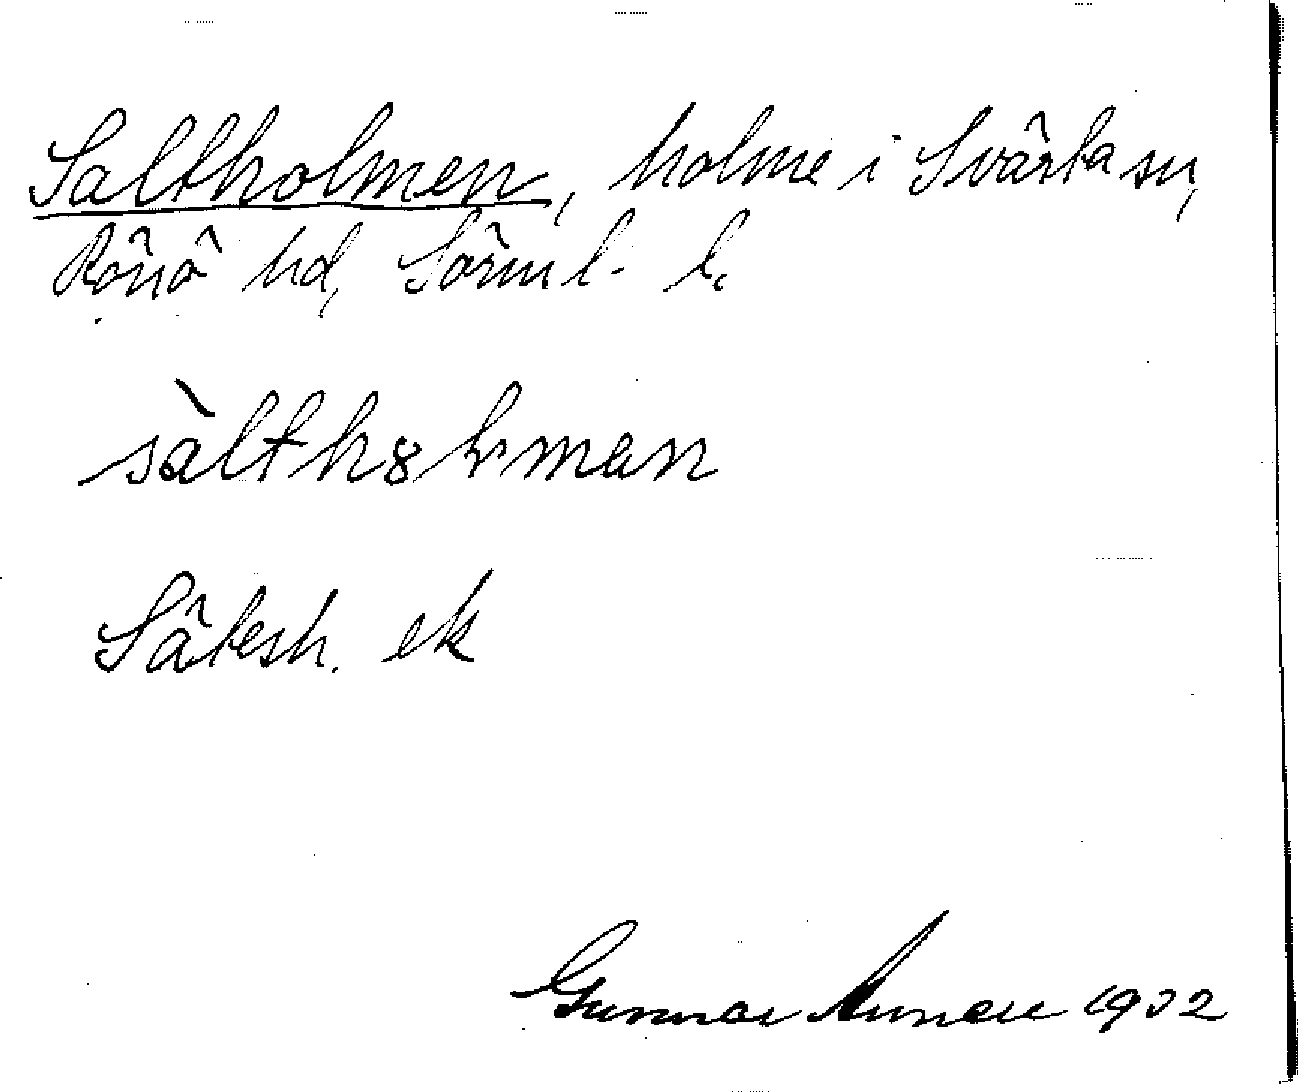 Saltholmen, holme i Svärta sn,
Rönö hd, Sörml. l.
sàlthȣlman
Sätesh. ek
Gunnar 1902